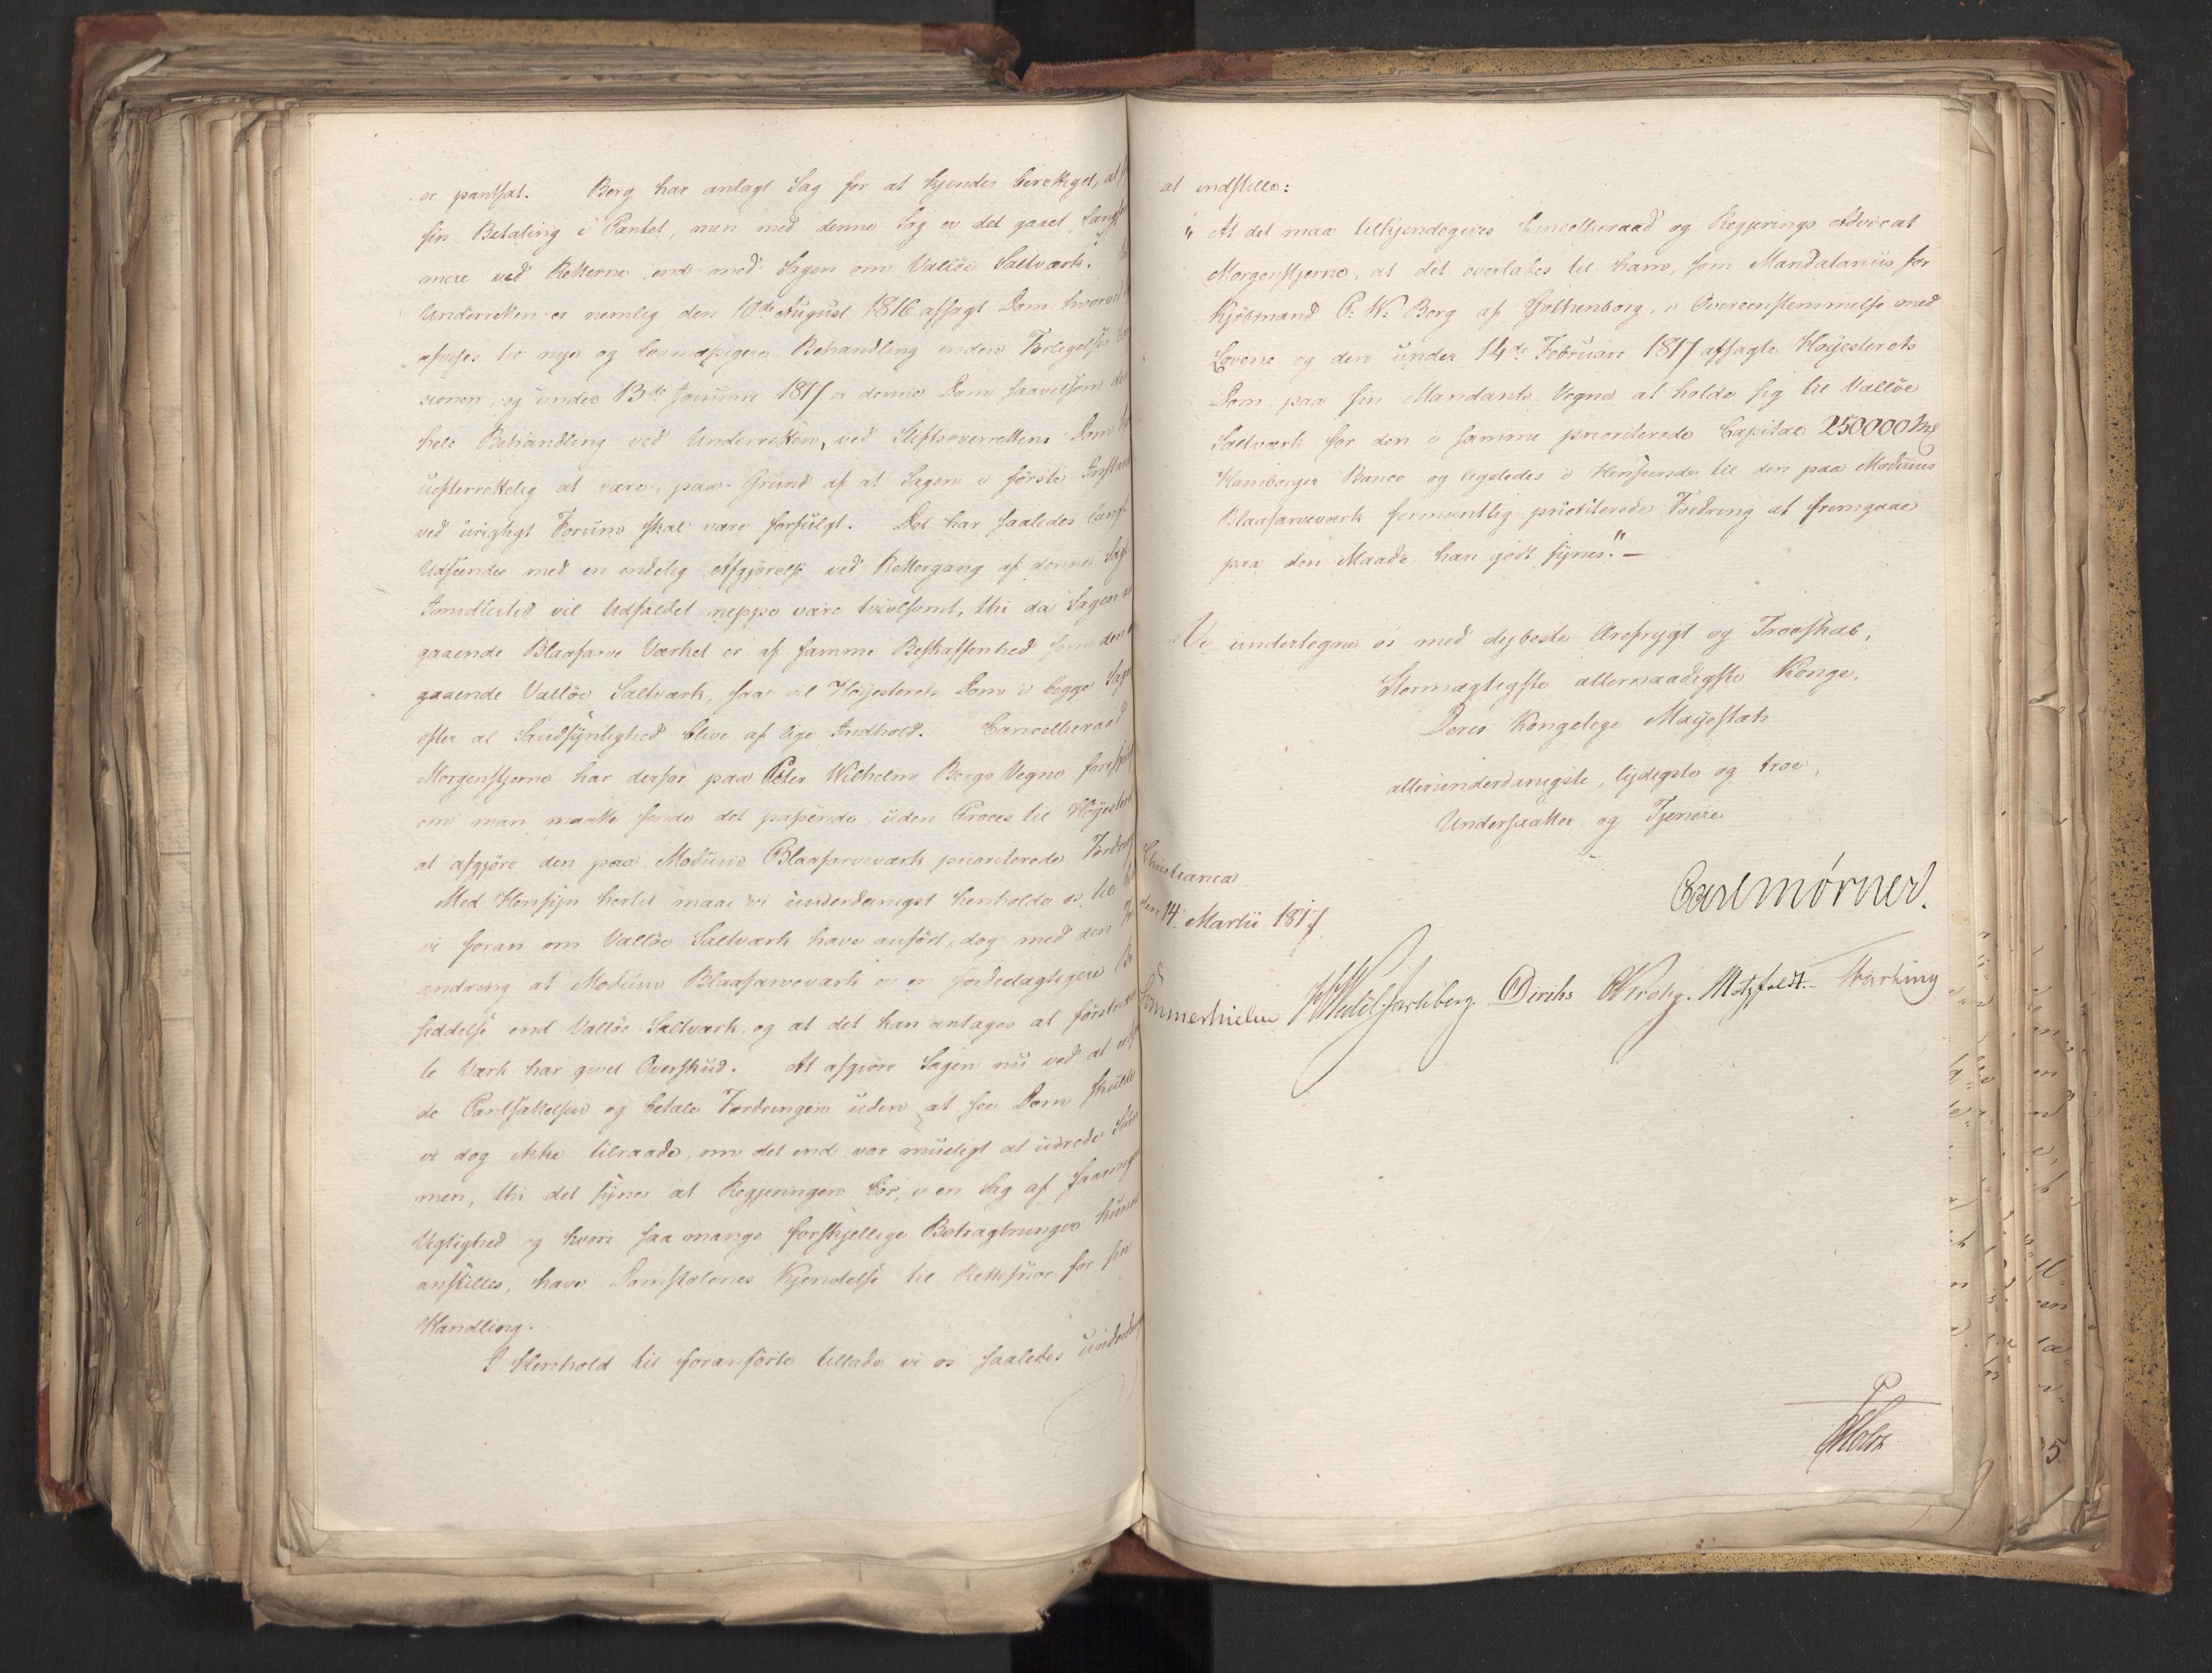 er pantsat. Berg har anlagt Sag for at kjendes berettiget, at
sin Betaling i Pantet, men med denne Sag er det gaaet
mere ved Retterne end med Sagen om Valløe Saltværk.
Underretten er nemlig den 10de August 1816 afsagt Dom hvorved
afvises til nye og lovmæssigere Behandling inden
sionen, og under 13de Januari 1817 er denne Dom saavelsom
hele Behandling ved Underretten, ved Stiftsoverrettens Dom
uefterrettelig at være, paa Grund af at Sagen i første
ved urigtigt Forum skal være forfulgt. Det har saaledes
Udseende med en endelig Afgjørelse ved Rettergang af denne
Imidlertid vil Udfaldet neppe være tvivlsomt, thi da Sagen
gaaende Blaafarve Værket er af samme Beskaffenhed som den
gaaende Valløe Saltværk, saa vil Høyesterets Dom i begge
efter al Sandsynlighed blive af lige Indhold. Cancelliraad
Morgenstjerne har derfor paa Peter Wilhelm Bergs Vegne
om man maatte finde det passende, uden Proces til
at afgjøre den paa Modums Blaafarveværk prioriterede
Med Hensyn hertil maae vi underdanigst henholde os til
vi foran om Valløe Saltværk have anført, dog med den
andring at Modums Blaafarveværk er en fordeelagtigere
siddelse end Valløe Saltværk, og at det kan antages at
te Værk har givet Overskud. At afgjøre Sagen nu ved at
de Pantsættelsen og betale Fordringen uden at see Dom skulde
vi dog ikke tilraade, om det end var mueligt at udrede
men, thi det synes at Regjeringen bør, i en Sag af
Vigtighed og hvori saa mange forskjellige Betragtninger
anstilles, have Domstolenes Kjendelse til Rettesnor for sin
Handling.
I Henhold til foranførte tillade vi os saaledes
at indstille:
" At det maa tilkjendegives Cancelliraad og Regjerings Advocat
Morgenstjerne, at det overlades til ham, som Mandatarius for
Kjøbmand P. W. Berg af Gothenborg, i Overeensstemmelse med
Lovene og den under 14de Februari 1817 afsagte Høyesterets
Dom, paa sin Mandants Vegne at holde sig til Valløe
Saltværk for den i samme prioriterede Capital 250000 Mk
Hamborger Banco og ligeledes i Henseende til den paa Modums
Blaafarveværk formeentlig prioriterede Fordring at fremgaae
paa den Maade han godt synes." —
Vi undertegne os med dybeste Ærefrygt og Troeskab,
Stormægtigste allernaadigste Konge,
Deres Kongelige Mayestæts
allerunderdanigste, lydigste og troe,
Undersaatter og Tjenere
Carl Mörner.
Christiania
den 14 Martii 1817
Sommerhielm HWedelJarlsberg. Diriks Krohg. Motzfeldt.
Holst